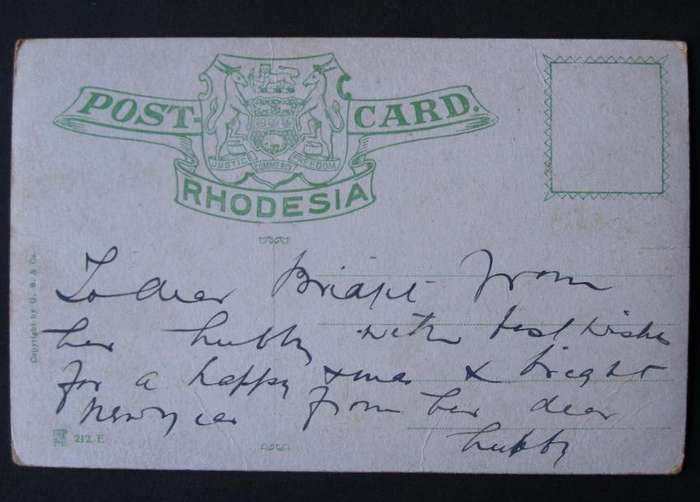 POST-CARD.
JUSTICE COMMERCE FREEDOM
RHODESIA
To dear Bridget From
her hubby with best wishes
for a happy xmas & bright
newyear from her dear
hubby
Copyright by U. B. & Co.
212. E